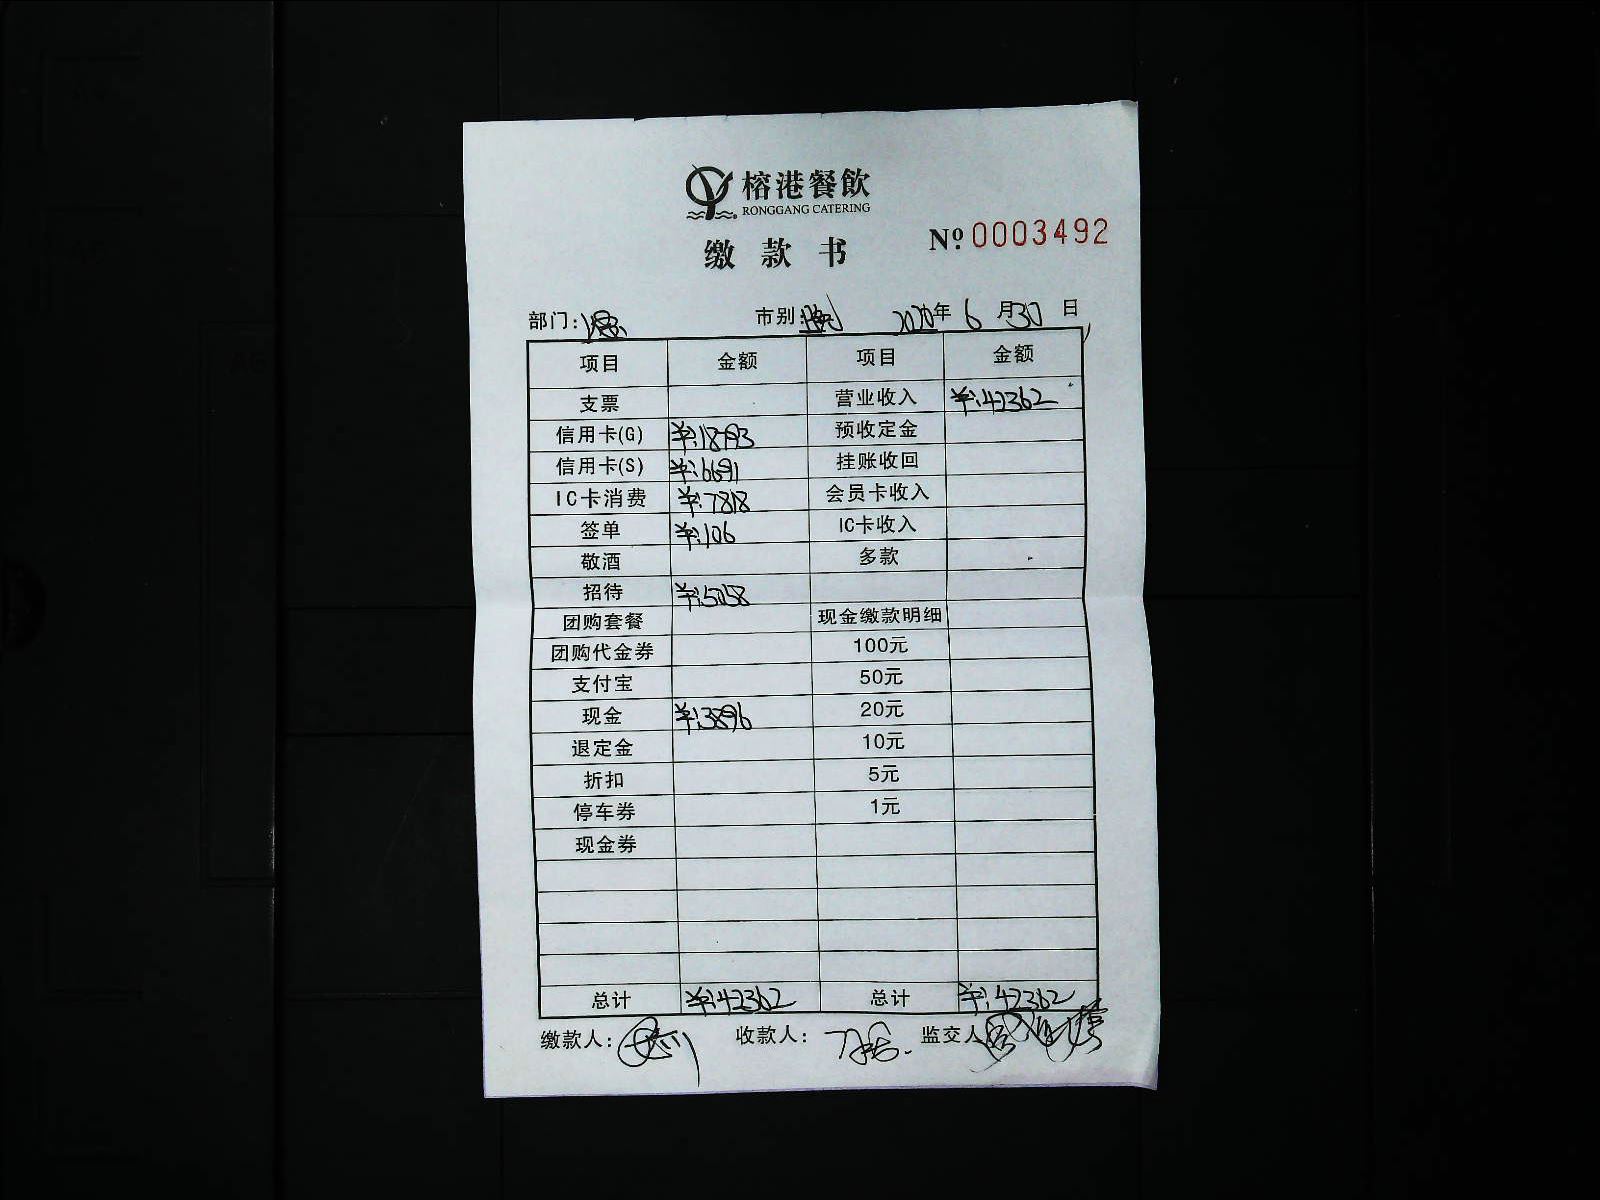 榕港餐飲
RONGGANG CATERING
缴款书 Nº 0003492
部门: 市别:晚 2020年 6 月30 日
项目 金额 项目 金额
支票 营业收入 ¥:42362
信用卡(G) ¥:18793 预收定金
信用卡(S) ¥:6691 挂账收回
IC卡消费 ¥:7818 会员卡收入
签单 ¥:106 IC卡收入
敬酒 多款
招待 ¥:5058
团购套餐 现金缴款明细
团购代金券 100元
支付宝 50元
现金 ¥:3896 20元
退定金 10元
折扣 5元
停车券 1元
现金券
总计 ¥:42362 总计 ¥:42362
缴款人: 收款人: 监交人